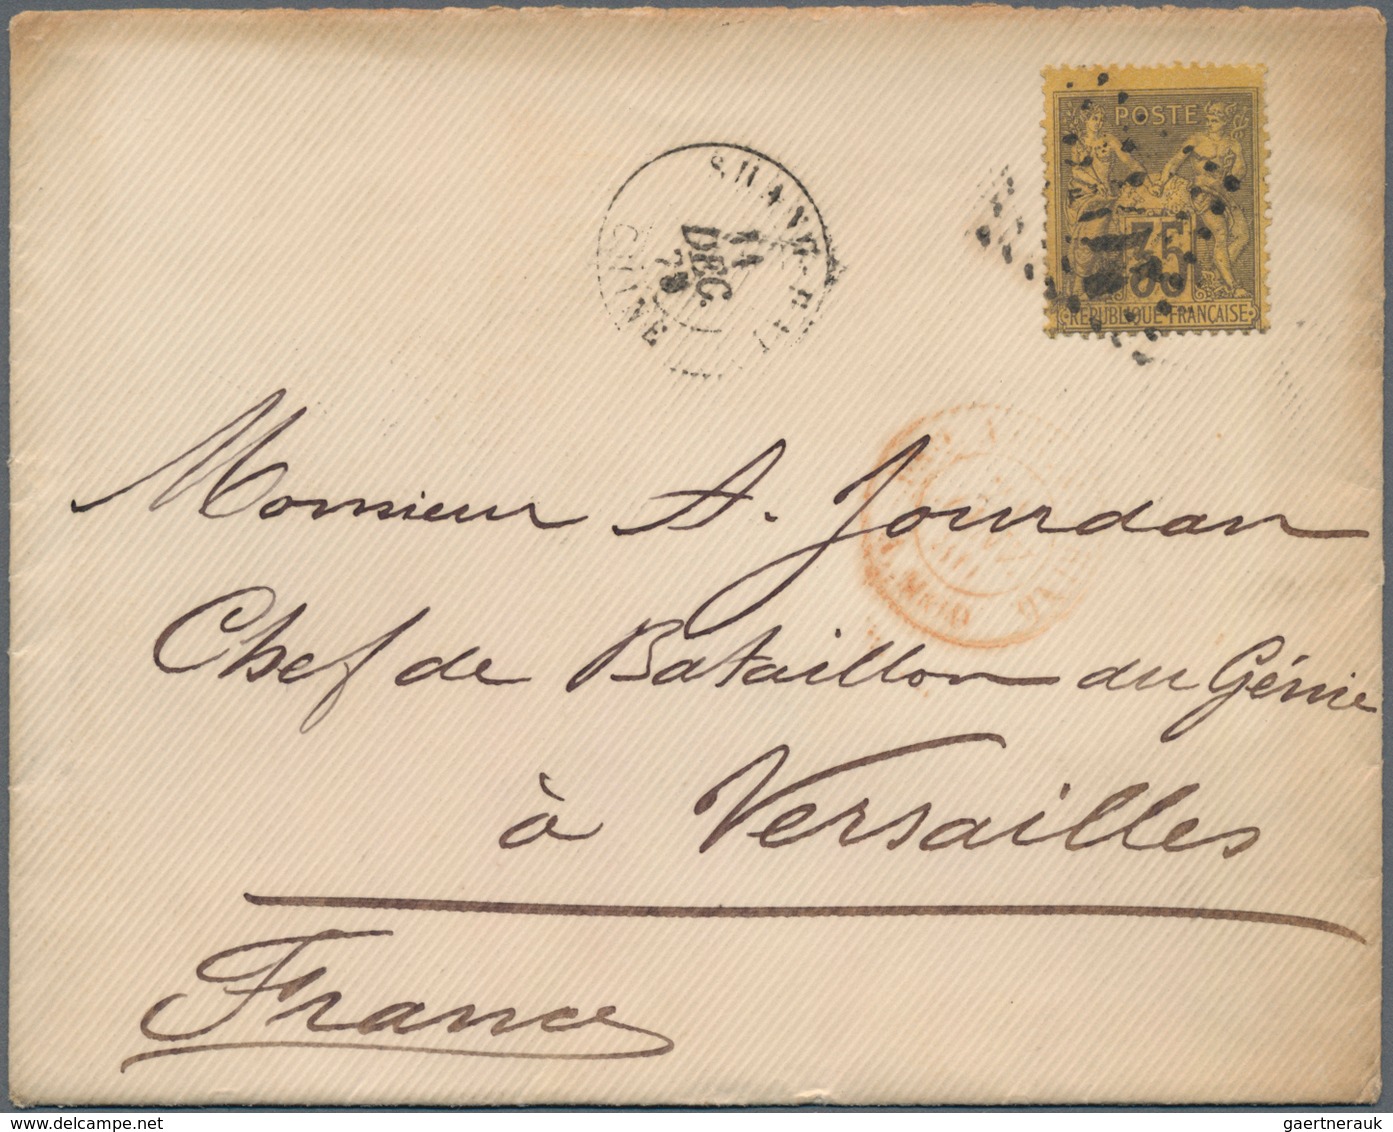 POSTE
35
REPUBLIQUE FRANÇAISE
SHANG-HAI
11
DEC.
79
CHINE
Monsieur A. Jourdan
Chef de Bataillon du Génie
à Versailles
France
gaertnerauk